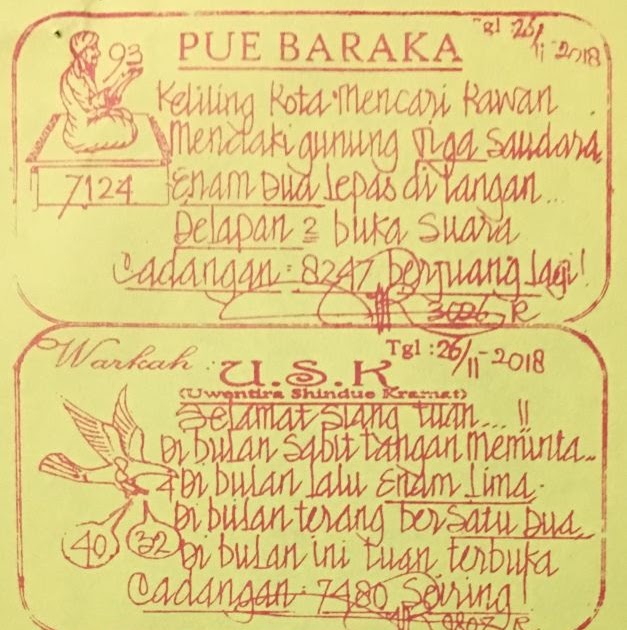 Tgl : 26/11-2018
PUE BARAKA
93
Keliling Kota Mencari Kawan
Mendaki gunung Tiga Saudara
7124
Enam Dua Lepas di tangan...
Delapan 2 buka suara
Cadangan : 8247 berjuang lagi!
3026 R
Warkah : U.S.K
Tgl : 26/11-2018
(Uwentira Shindue Kramat)
Selamat siang tuan... !!
Di bulan Sabit tangan meminta..
Di bulan lalu Enam Lima.
Di bulan terang bersatu Dua..
40 32
Di bulan ini tuan terbuka
Cadangan : 7480 Seiring!
R